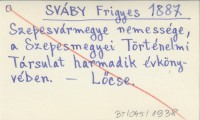 SVÁBY Frigyes 1887
Szepesvármegye nemessége,
a Szepesmegyei Történelmi
Társulat harmadik évköny-
vében. — Lőcse.